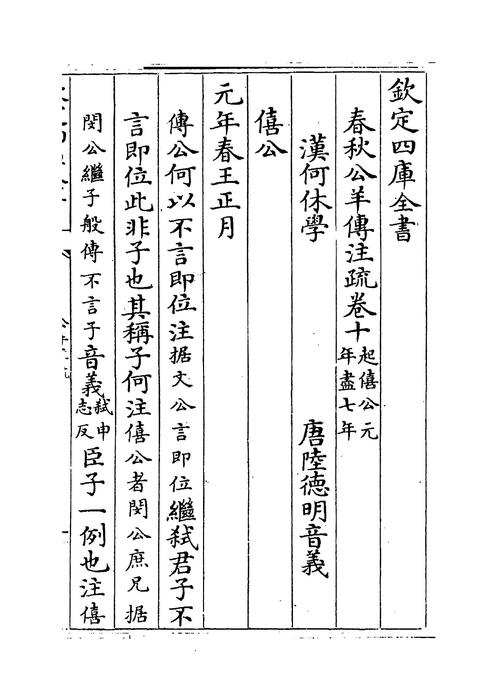 欽定四庫全書
春秋公羊傳注疏卷十起僖公元年盡七年
漢何休學　唐陸德明音義
僖公
元年春王正月
傳公何以不言即位注据文公言即位繼弑君子不
言即位此非子也其稱子何注僖公者閔公庶兄据
閔公繼子般傳不言子音義弑申志反臣子一例也注僖